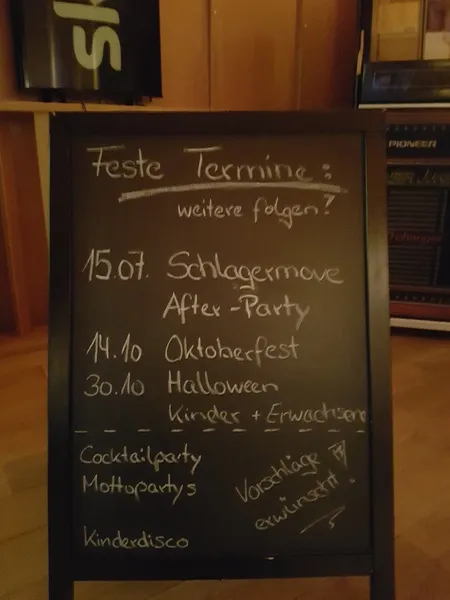 sk
PIONEER
Feste Termine:
weitere folgen!
15.07. Schlagermove
After-Party
14.10 Oktoberfest
30.10 Halloween
Kinder + Erwachsene
Cocktailparty
Mottopartys
Vorschläge
erwünscht!
Kinderdisco